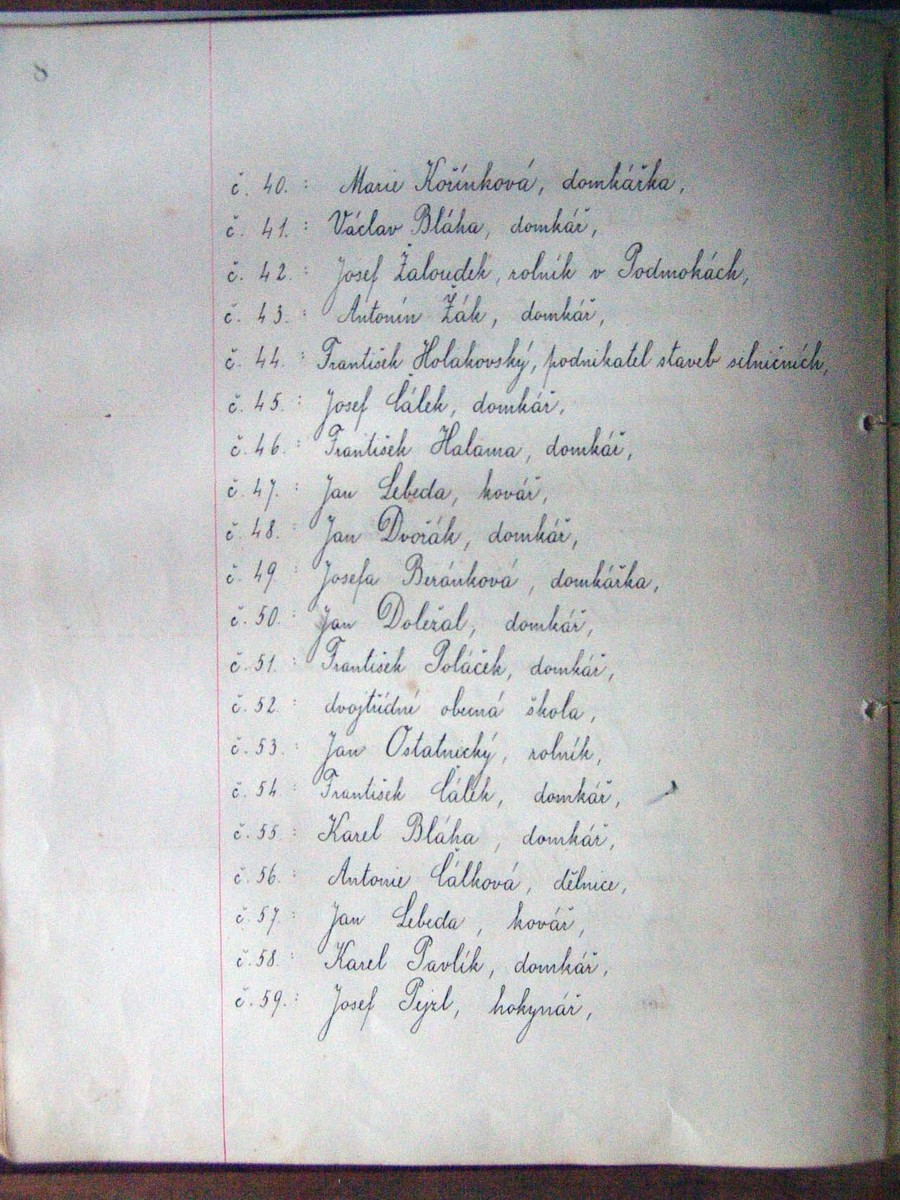 8
č. 40. : Marie Kořínková, domkářka,
č. 41. : Václav Bláha, domkář,
č. 42. : Josef Žaloudek, rolník v Podmokách,
č. 43. : Antonín Žák, domkář,
č. 44. : František Holakovský, podnikatel staveb silničních,
č. 45. : Josef Čálek, domkář,
č. 46. : František Halama, domkář,
č. 47. : Jan Lebeda, kovář,
č. 48. : Jan Dvořák, domkář,
č. 49. : Josefa Beránková, domkářka,
č. 50. : Jan Doležal, domkář,
č. 51. : František Poláček, domkář,
č. 52. : dvojtřídné obecná škola,
č. 53. : Jan Ostatnický, rolník,
č. 54. : František Čálek, domkář,
č. 55. : Karel Bláha, domkář,
č. 56. : Antonie Čálková, dělnice,
č. 57. : Jan Lebeda, kovář,
č. 58. : Karel Pavlík, domkář,
č. 59. : Josef Pejzl, hokynář,